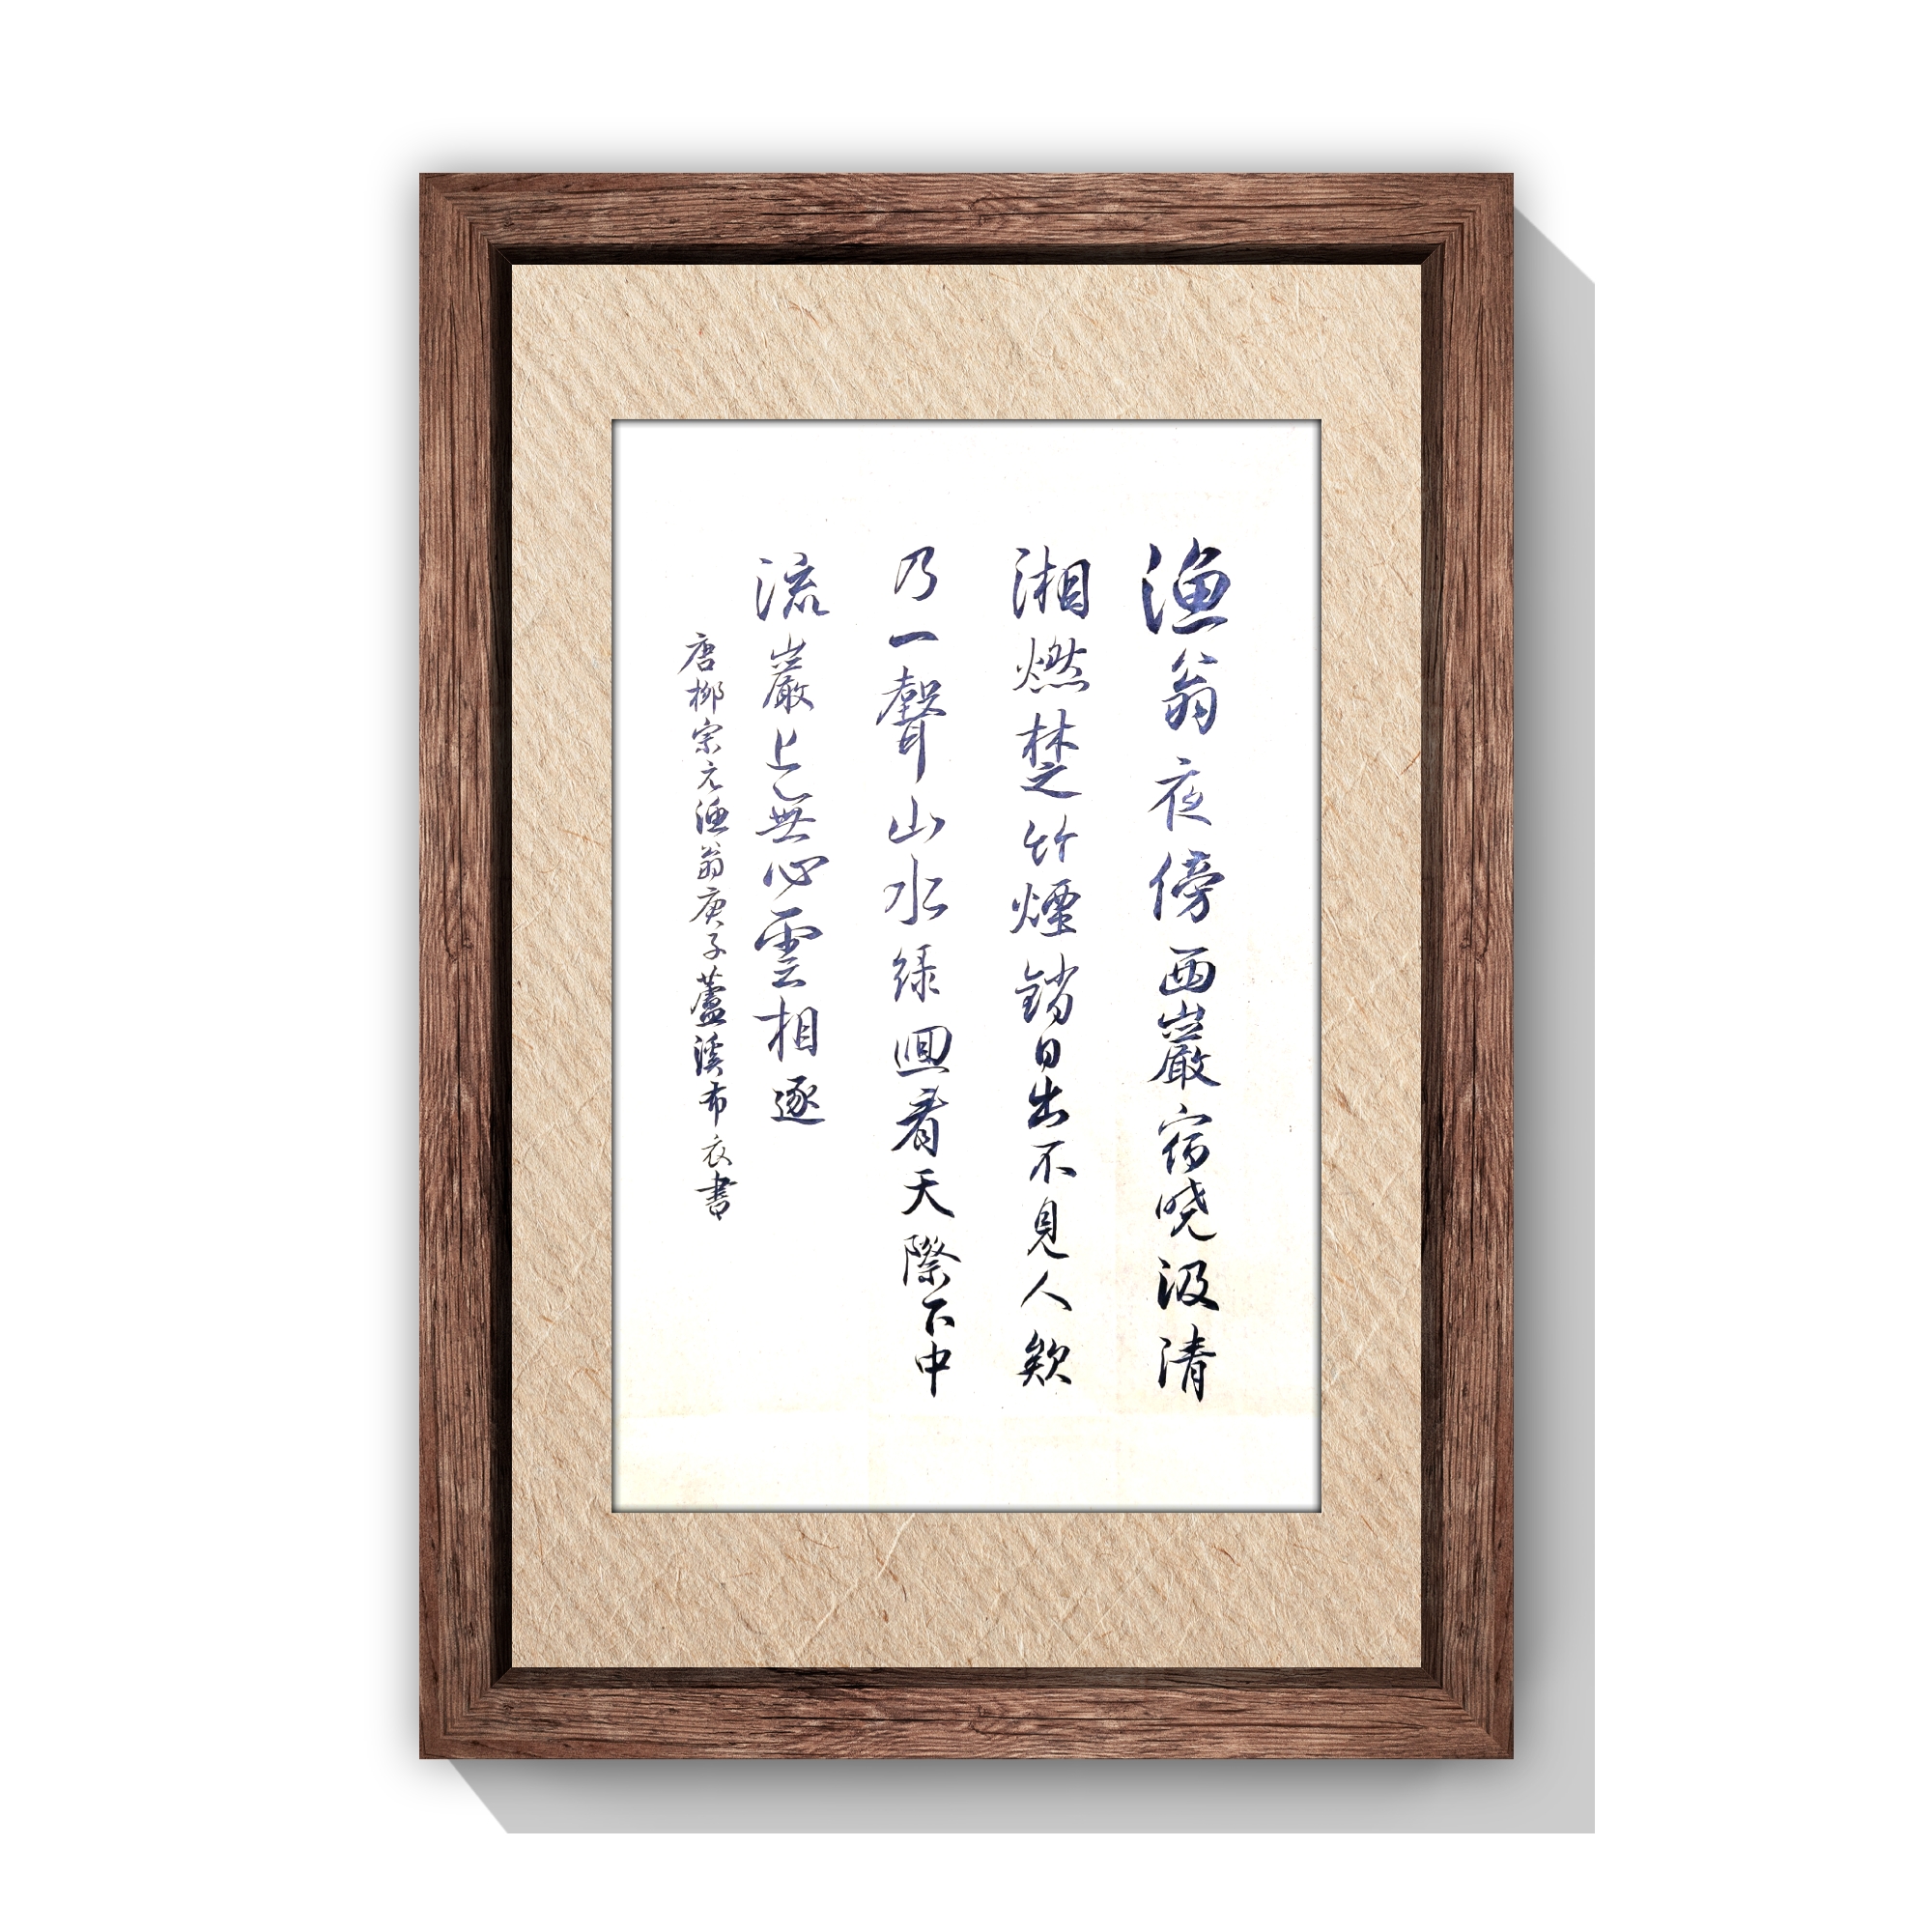 渔翁夜傍西巖宿晓汲清
湘燃楚竹煙銷日出不見人欸
乃一聲山水緑迴看天際下中
流巖上無心雲相逐
唐柳宗元渔翁庚子蘆溪布衣書